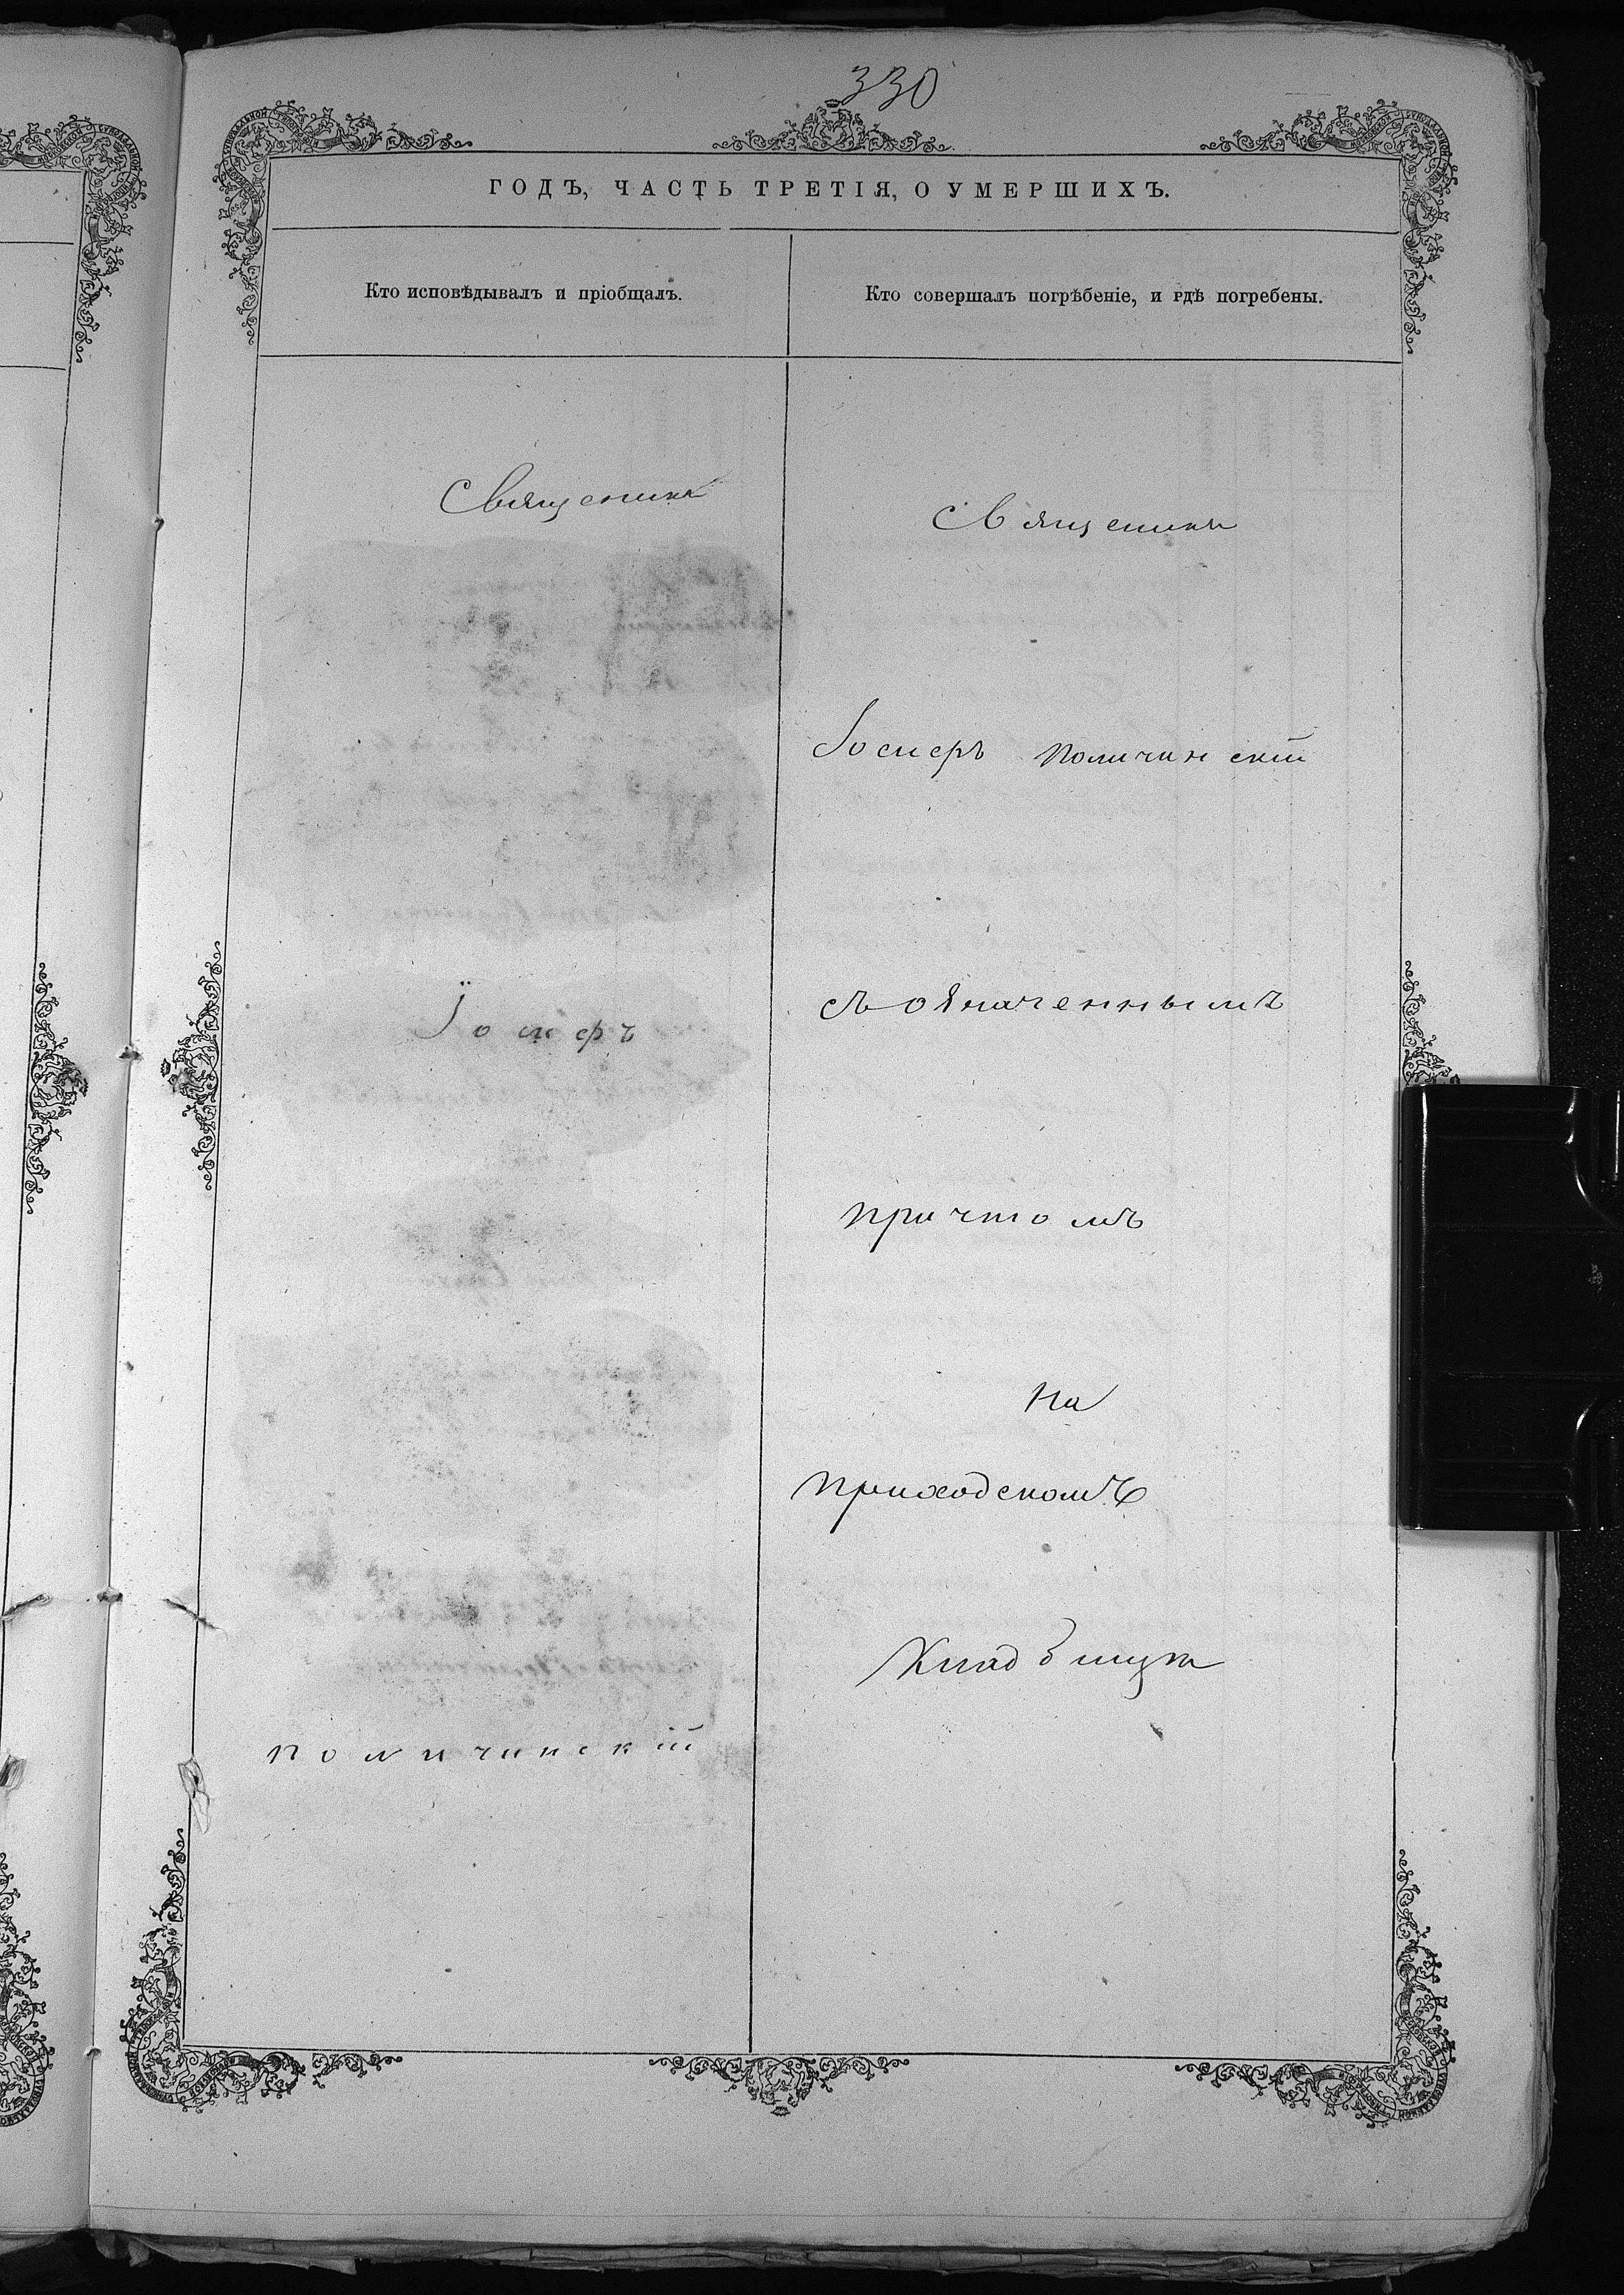 330
ГОДЪ, ЧАСТЬ ТРЕТІЯ, О УМЕРШИХЪ.
Кто исповѣдывалъ и пріобщалъ.
Кто совершалъ погрѣбеніе, и гдѣ погребены.
Священикъ
Іосифъ
поличинскій
Священикъ
Іосифъ поличинскій
съ означеннымъ
причтомъ
На
приходскомъ
Кладбищѣ